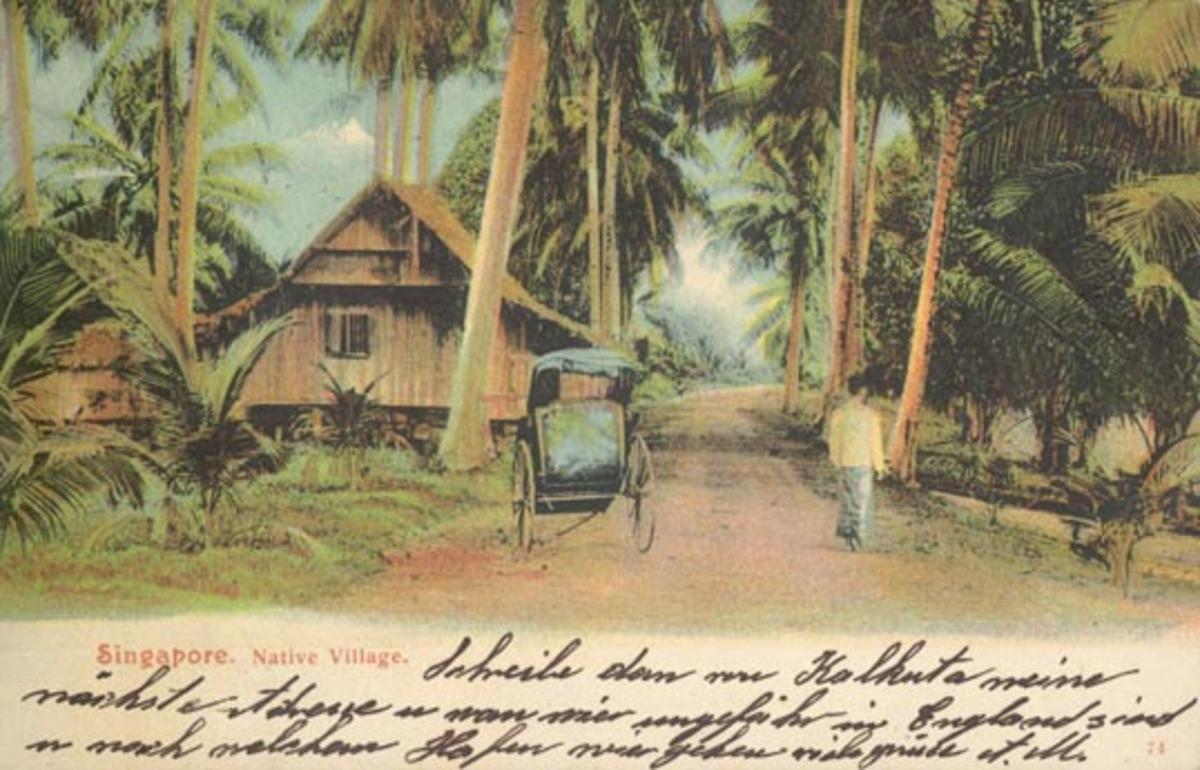 Singapore. Native Village. Schreibe dan von Kalkuta meine
nächste Adresse u wan wir ungefähr in England sind
u nach welchem Hafen wir gehen viele grüße A. M.
74